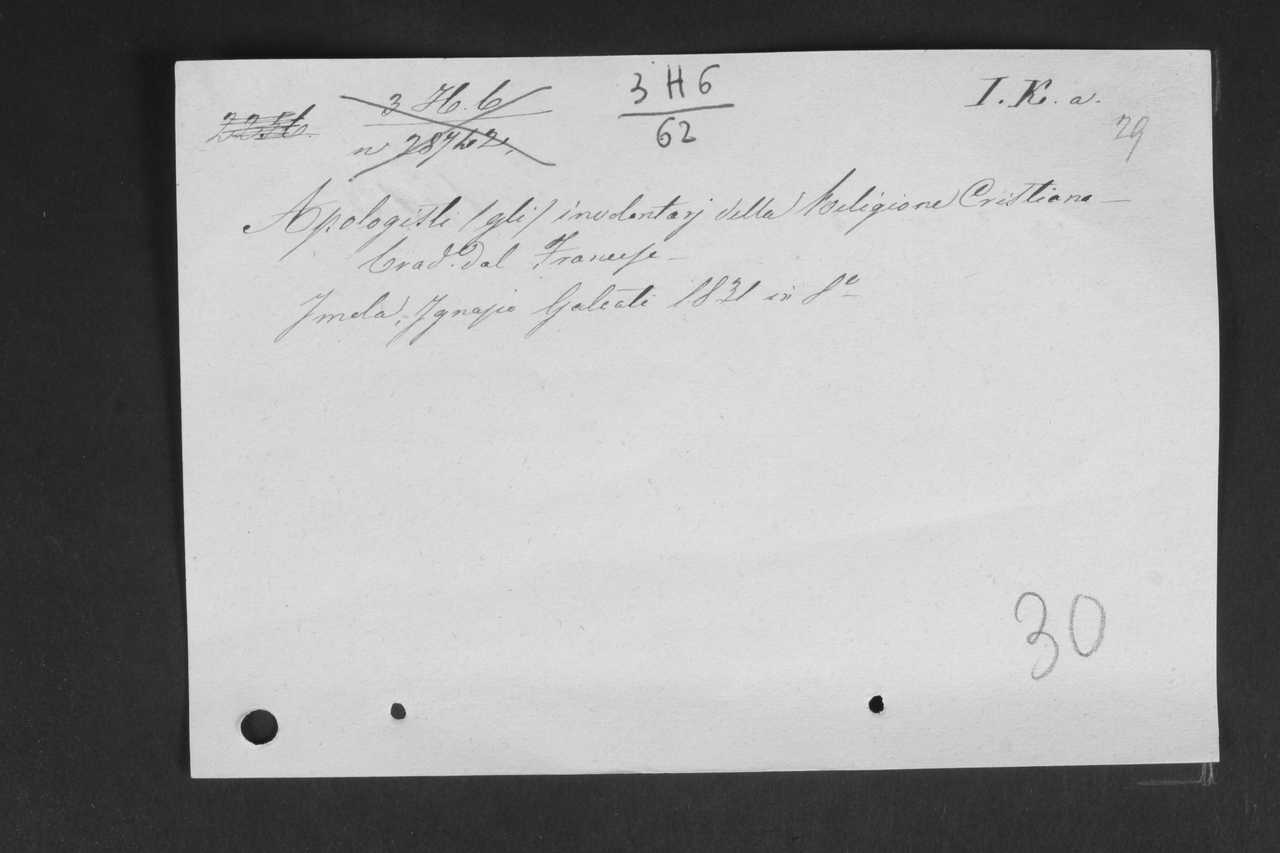 3 H. 6
n 28742.
3 H 6
62
I. K. a.
29
Apologisti (gli) involontarj della Religione Cristiana —
Trad.e dal Francese —
Imola, Ignazio Galeati 1831 in 8°
30